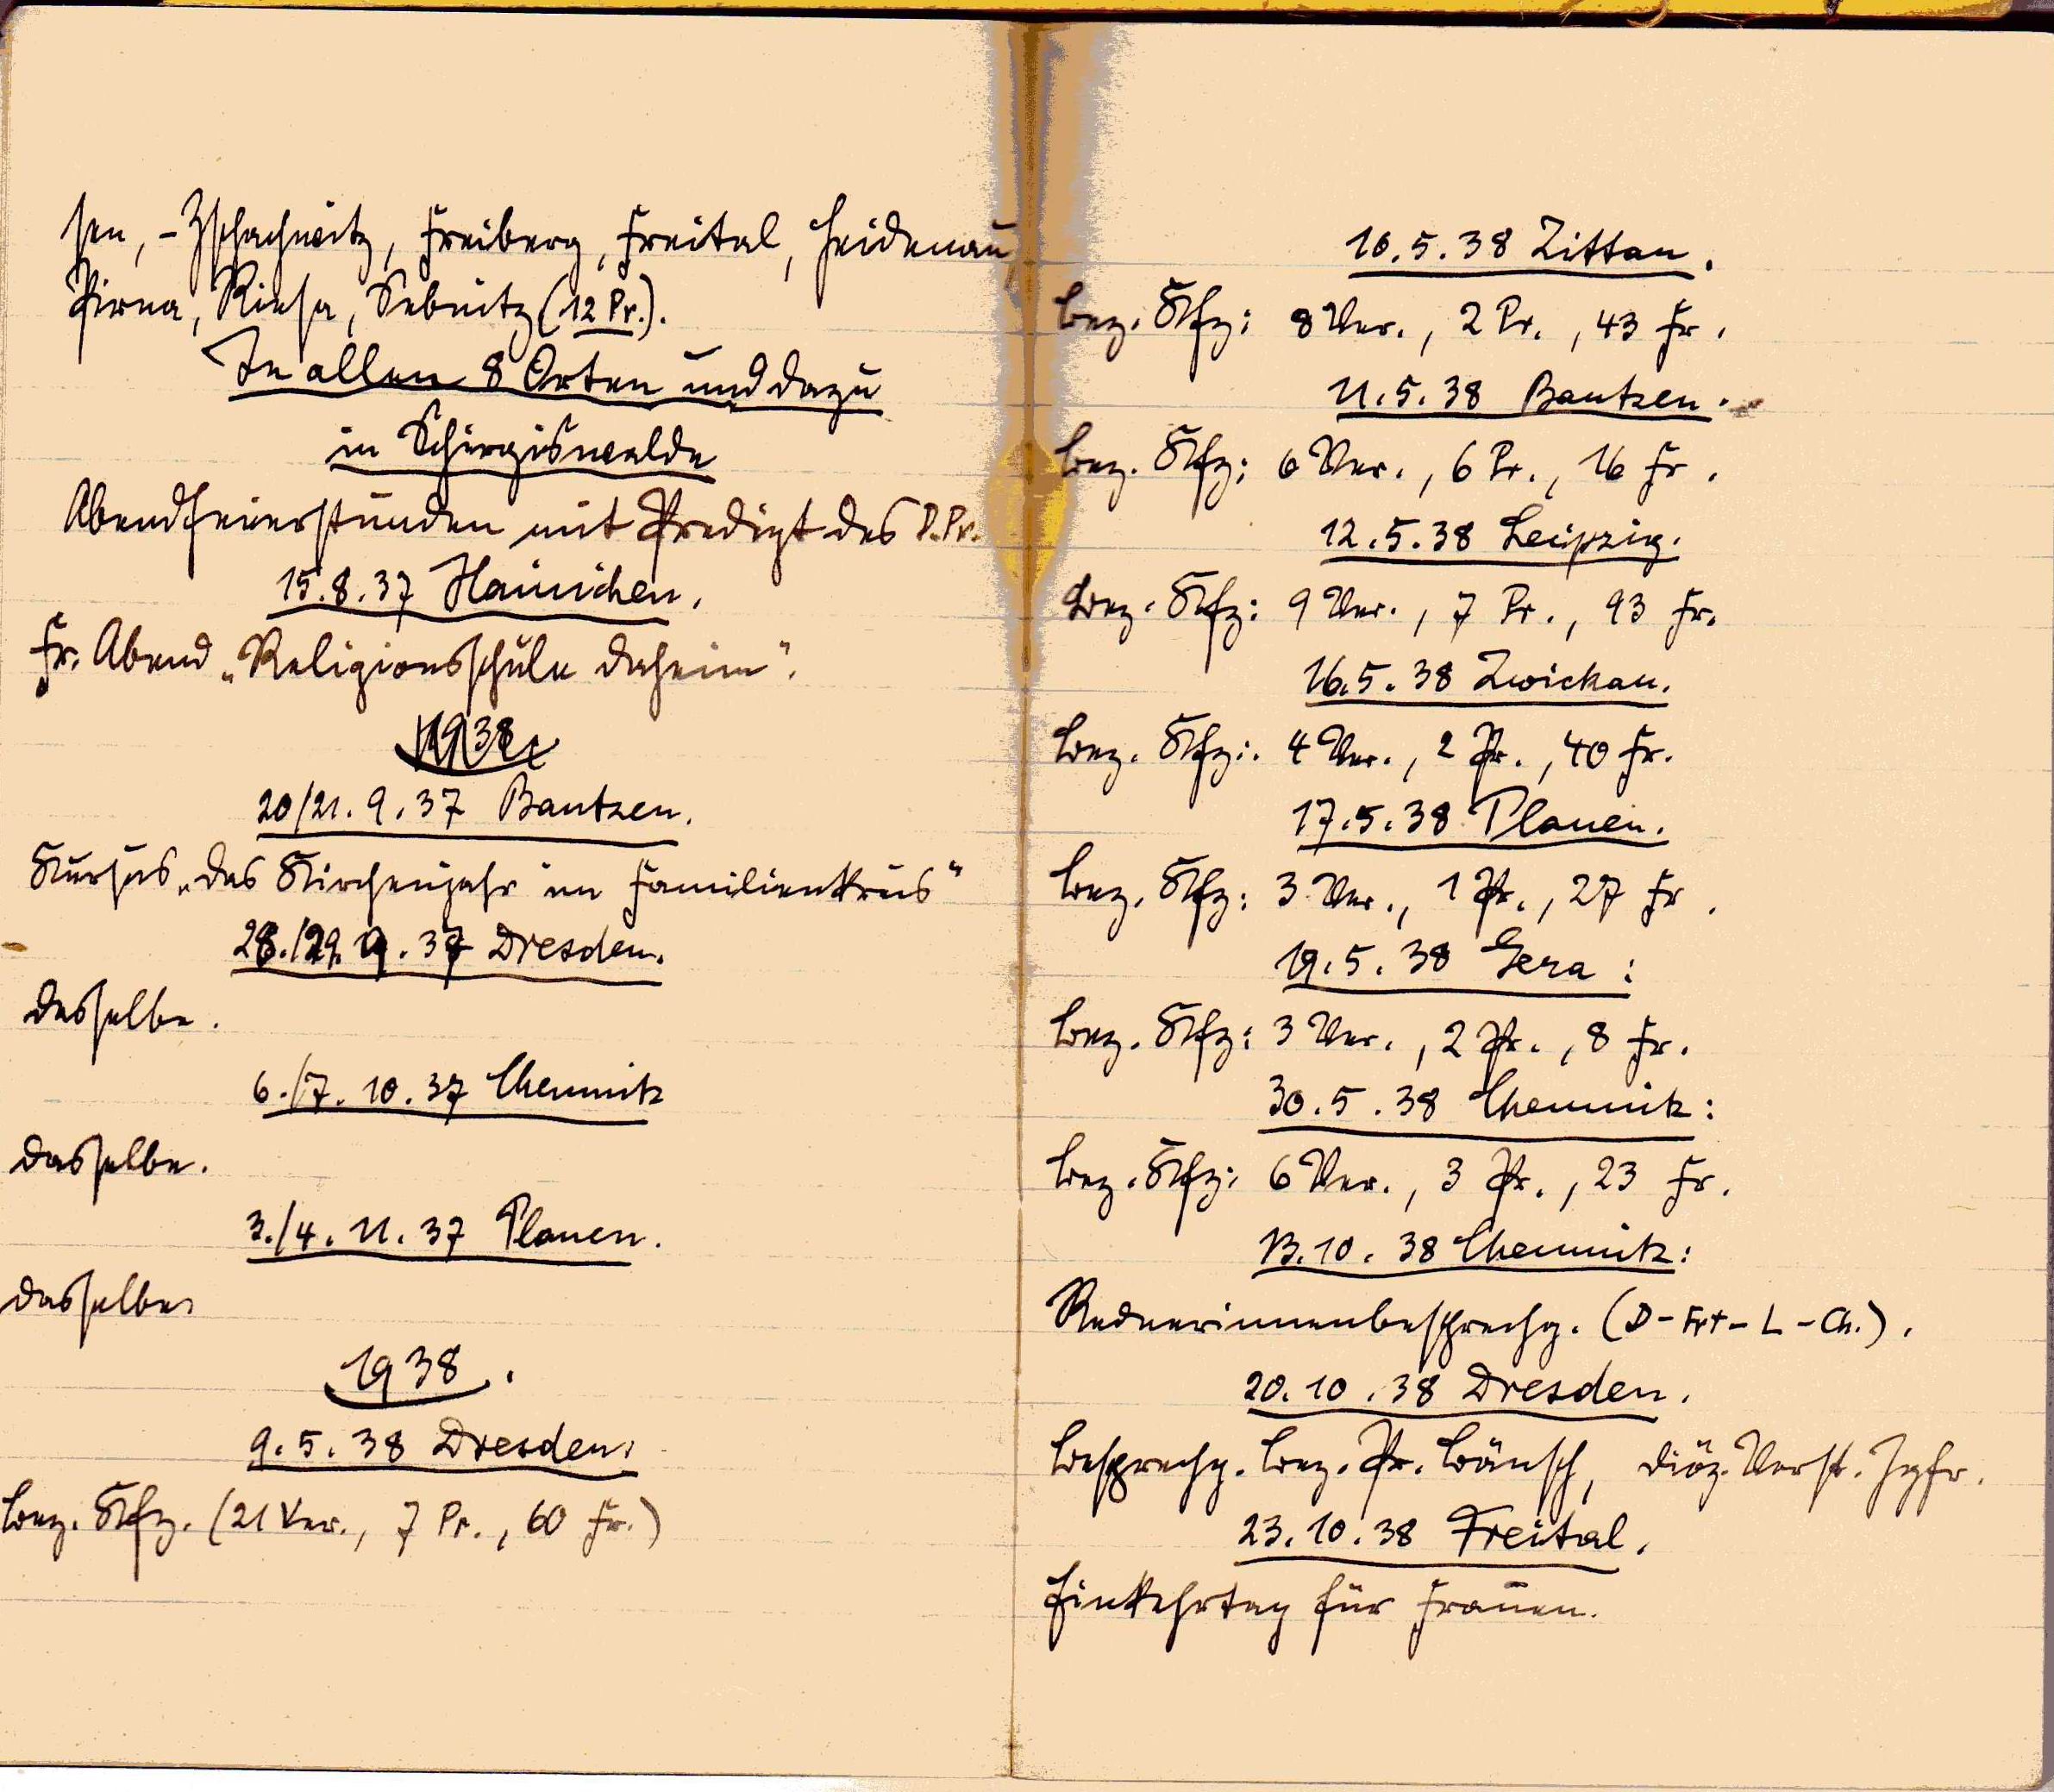 sen, -Zschachwitz, Freiberg, Freital, Heidenau,
Pirna, Riesa, Sebnitz (12 Pr.).
In allen 8 Orten und dazu
in Schirgiswalde
Abendfeierstunden mit Predigt des D.Pr.
15.8.37 Hainichen.
Fr. Abend „Religionsschule daheim".
1938
20/21.9.37 Bautzen.
Kursus „Das Kirchenjahr im Familienkreis"
28./29.9.37 Dresden.
Dasselbe.
6./7.10.37 Chemnitz
Dasselbe.
3./4.11.37 Plauen.
Dasselbe.
1938.
9.5.38 Dresden:
Bez. Kfz. (21 Ver., 7 Pr., 60 Fr.)
10.5.38 Zittau.
Bez. Kfz: 8 Ver., 2 Pr., 43 Fr.
11.5.38 Bautzen.
Bez. Kfz: 6 Ver., 6 Pr., 16 Fr.
12.5.38 Leipzig.
Bez. Kfz: 9 Ver., 7 Pr., 93 Fr.
16.5.38 Zwickau.
Bez. Kfz: 4 Ver., 2 Pr., 40 Fr.
17.5.38 Plauen.
Bez. Kfz: 3 Ver., 1 Pr., 27 Fr.
19.5.38 Gera:
Bez. Kfz: 3 Ver., 2 Pr., 8 Fr.
30.5.38 Chemnitz:
Bez. Kfz: 6 Ver., 3 Pr., 23 Fr.
13.10.38 Chemnitz:
Rednerinnenbesprechg. (D-Frt-L-Ch.).
20.10.38 Dresden.
Besprechg. Bez. Pr. Bänsch, Diöz. Vorst. Jgfr.
23.10.38 Freital.
Einkehrtag für Frauen.